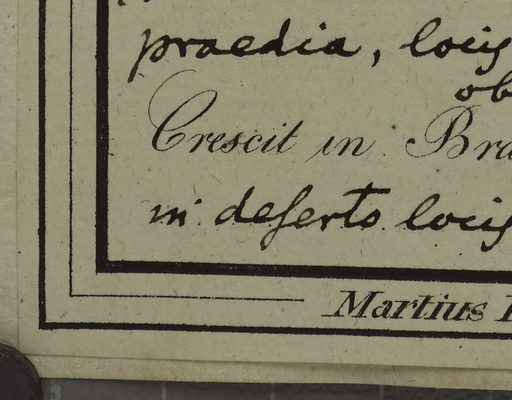 praedia, locis
ob
Crescit in Bra
in deserto locis
Martius